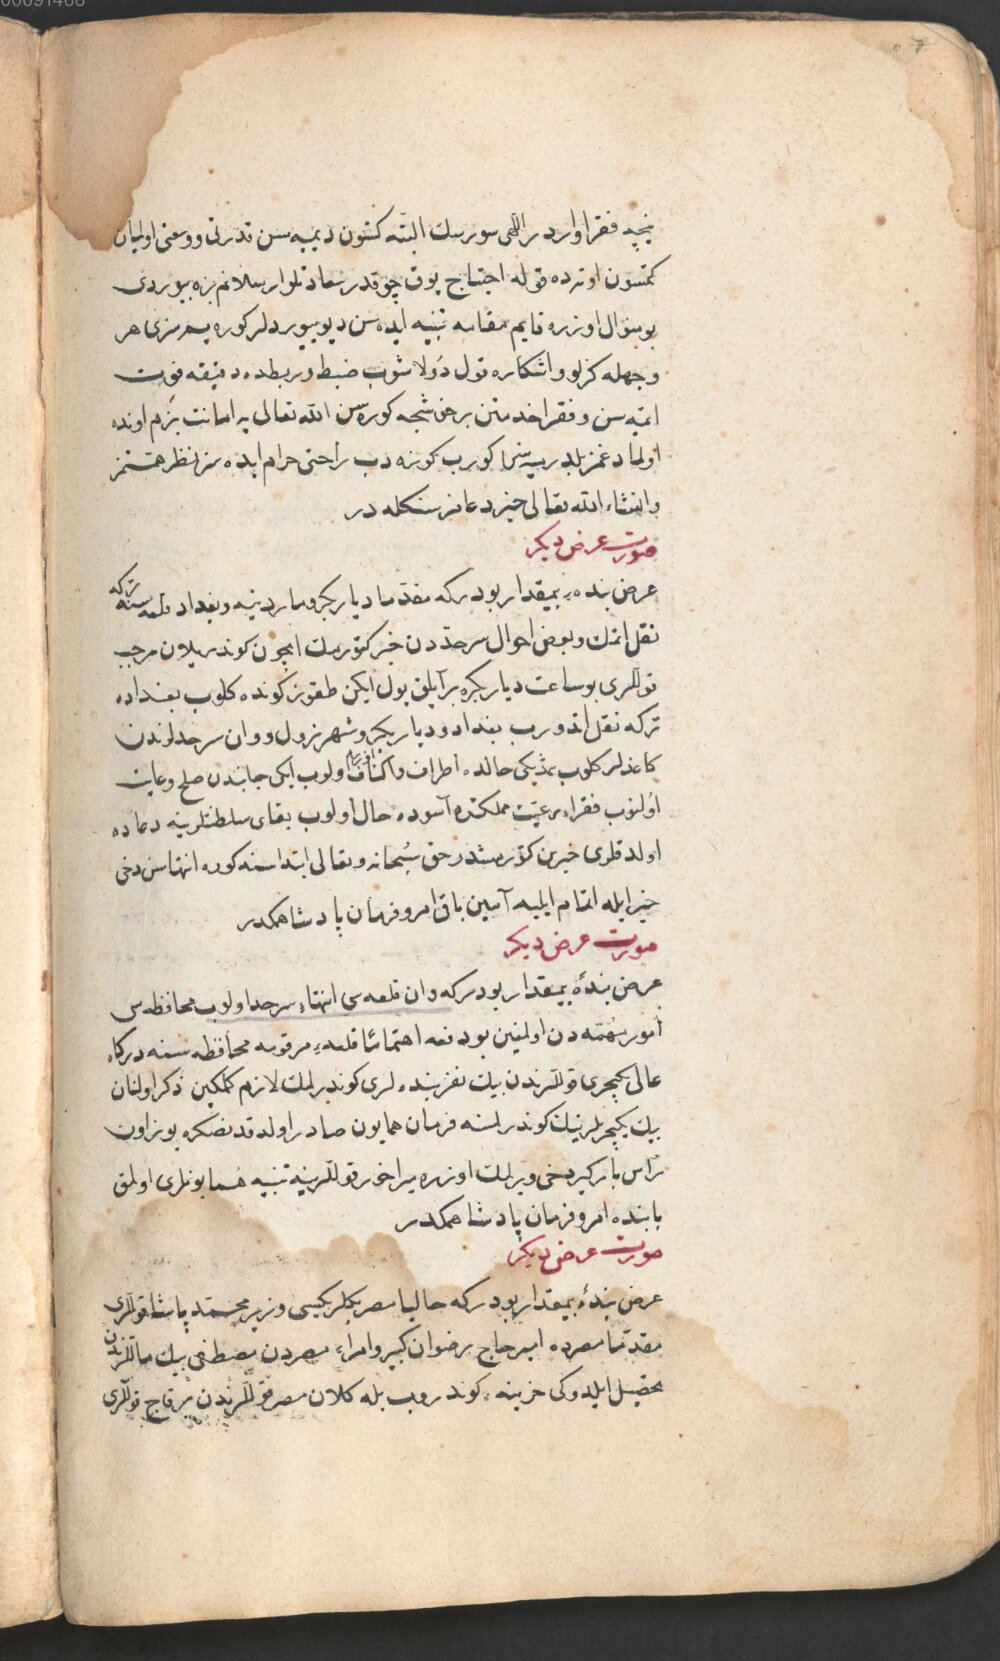 00091466
نیچه فقرا وارد در اللهی سورسك البته كتسون دیمیه سن قدرتی ووسعی اولیان
كتسون اوتیرده قوله احتیاج یوق چوقدر سعادتلو ارسلانم زه بیوردی
بو منوال اوزره قایم مقامه تنبیه ایده سن دیو بیوردلر كوره یم سزی هر
وجهله كزلو واشكاره قول دولاشوب ضبط وربطده دقیقه فوت
اتمیه سن وفقرا خدمتن برخوشجه كوره سن الله تعالی یه امانت بزم اونده
اولمادغمز بلدرمیه سز كورب كوزه دب راحتی حرام ایده سز نظر همتمز
وانشاء الله تعالی خیر دعامز سنكله در
صورت عرض دیكر
عرض بندهٔ بیمقدار بودر كه مقدما دیاربكر وماردینه وبغداد قلعه سنه تركه
نقل اتمك وبعض احوال سرحددن خبر كتورمك ایچون كوندریلان مرجب
قوللری بو ساعت دیاربكره بر آیلق یول ایكن طقوز كونده كلوب بغداده
تركه نقل اتدورب بغداد ودیاربكر وشهرزول ووان سرحدلرندن
كاغدلر كلوب شمدیكی حالده اطراف واكناف اولوب ایكی جانبدن صلح رعایت
اولنوب فقراء رعیت مملكتده آسوده حال اولوب بقای سلطنتلرینه دعاده
اولدقلری خبرین كتورمشدر حق سبحانه وتعالی ابتداسنه كوره انتهاسن دخی
خیر ایله اتمام ایلیه آمین باقی امر وفرمان پادشاهمكدر
صورت عرض دیكر
عرض بندهٔ بیمقدار بودر كه وان قلعه سی انتهاء سرحد اولوب محافظه سی
امور مهمه دن اولمغین بو دفعه اهتماما قلعهٔ مرقومه محافظه سنه دركاه
عالی یكیچری قوللرندن بیك نفر بنده لری كوندرلمك لازم كلمكین ذكر اولنان
بیك یكیچریلرینك كوندرلمسنه فرمان همایون صادر اولدقدنصكره یوز اون
رأس باركیر دخی ویرلمك اوزره میراخور قوللرینه تنبیه همایونلری اولمق
بابنده امر وفرمان پادشاهمكدر
صورت عرض دیكر
عرض بندهٔ بیمقدار بودر كه حالیا مصر بكلربكیسی وزیر محمد پاشا قوللری
مقدما مصرده امیر حاج رضوان كبیر وامراء مصردن مصطفی بیك ماللرندن
تحصیل ایلدوكی خزینه كوندروب بله كلان مصر قوللرندن برقاچ قوللری